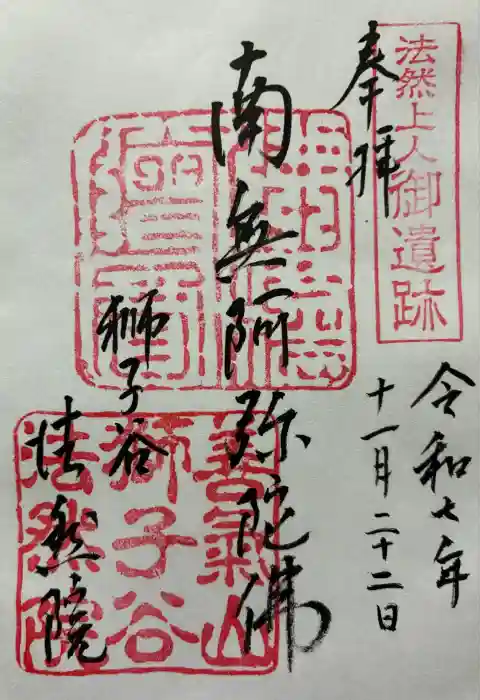 奉拝
法然上人御遺跡
令和七年
十一月二十二日
南無阿弥陀佛
獅子谷
法然院
善氣山
獅子谷
法然院